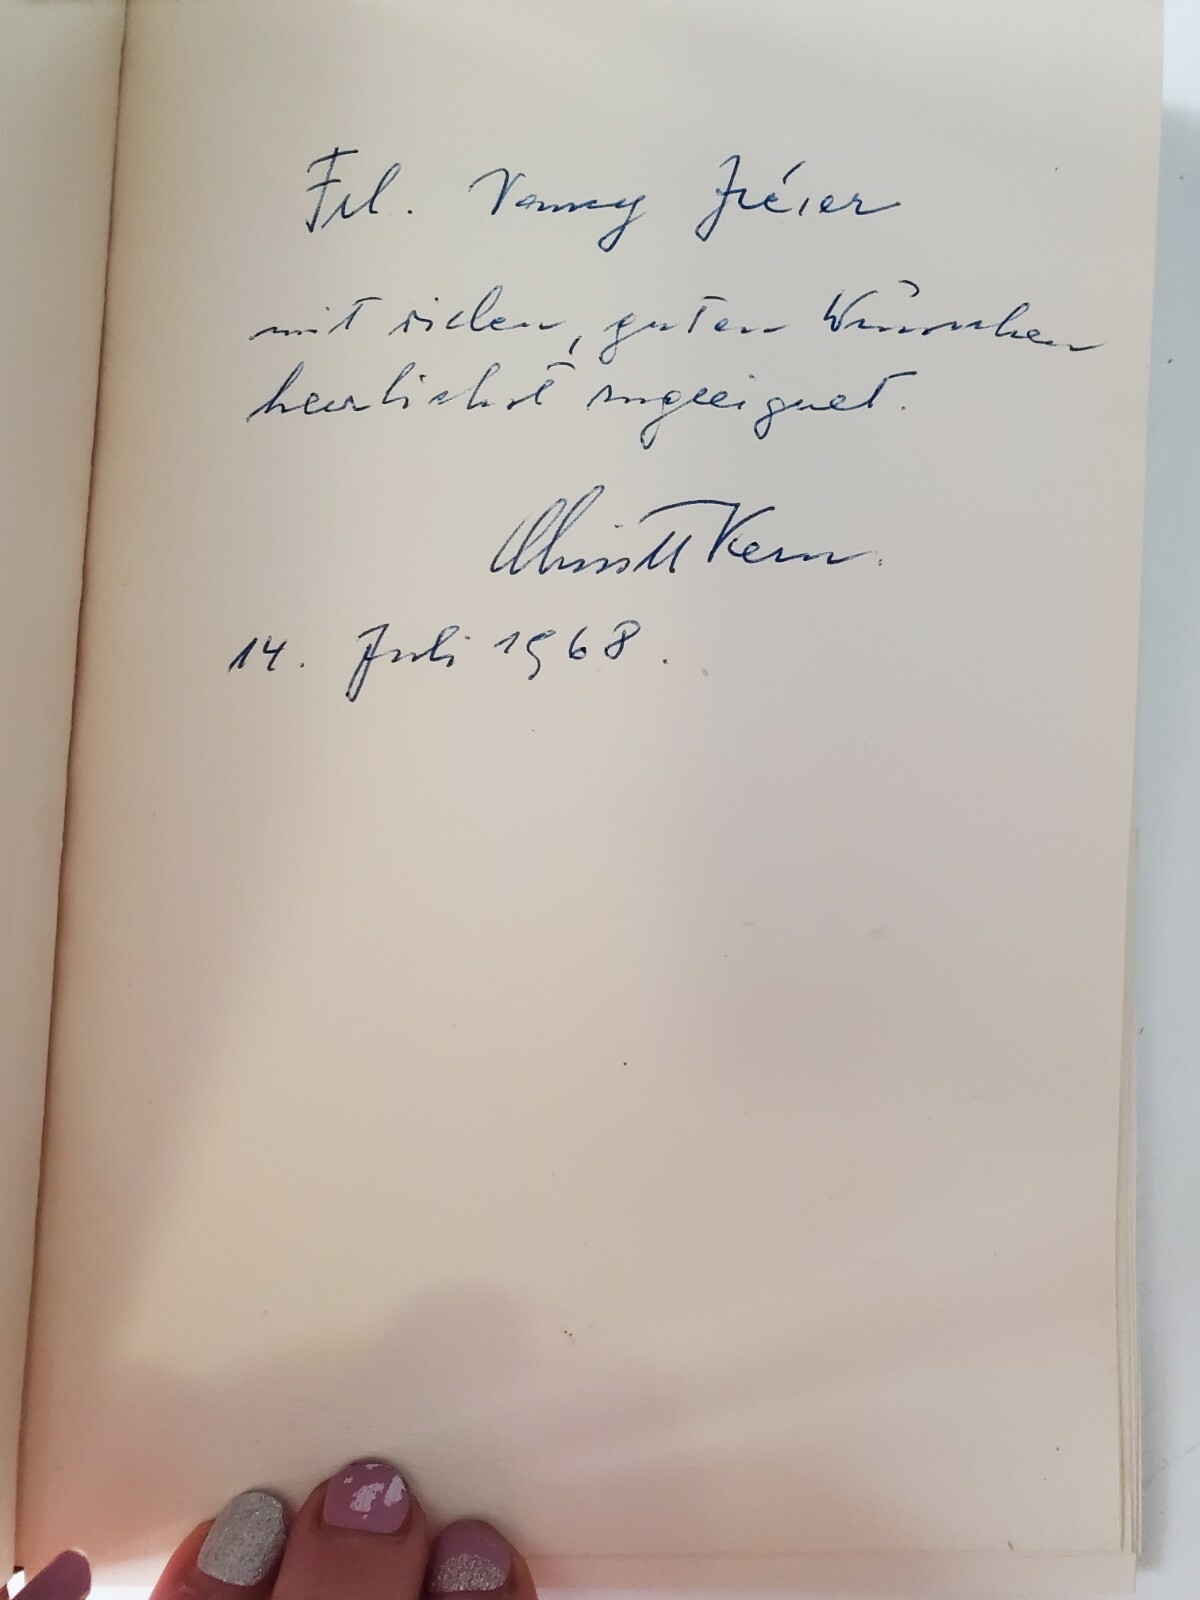 Frl. Nancy
mit vielen, guten Wünschen
herzlichst zugeeignet.
Kern.
14. Juli 1968.